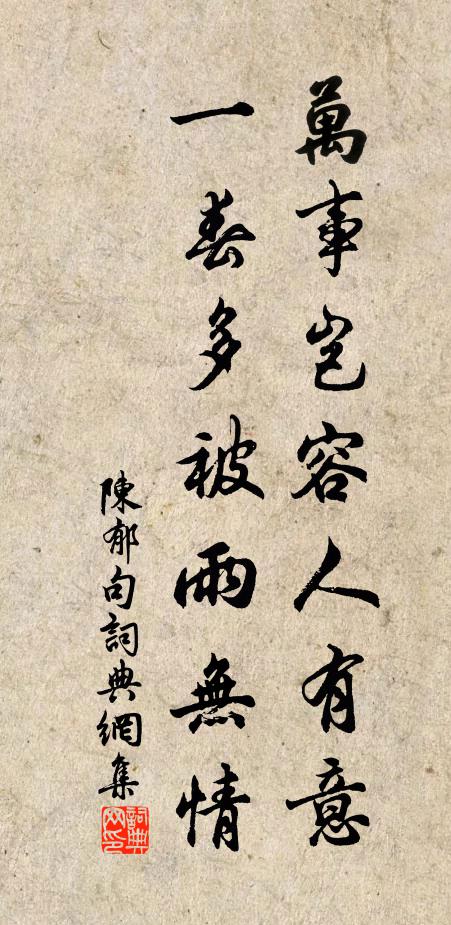 萬事豈容人有意
一春多被雨無情
陳郁句詞典網集
詞典網印